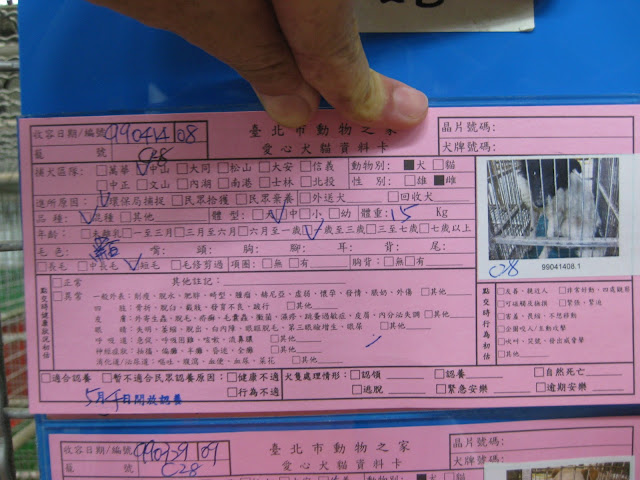 C28
收容日期/編號 990414 08 臺北市動物之家 晶片號碼:
籠 號 C28 愛心犬貓資料卡 犬牌號碼:
捕犬區隊: □萬華 ☑中山 □大同 □松山 □大安 □信義 動物別: ■犬 □貓
□中正 □文山 □內湖 □南港 □士林 □北投 性 別: □雄 ■雌
送所原因: ☑環保局捕捉 □民眾拾獲 □民眾棄養 □外送犬 □回收犬
品種: ☑混種 □其他 體 型: □大 ☑中 □小 □幼 體重: 15 Kg
年齡: □未離乳 □一至三月 □三月至六月 □六月至一歲 ☑一歲至三歲 □三至七歲 □七歲以上
毛色: 黑白 嘴: 頭: 胸: 腳: 耳: 背: 尾:
□長毛 □中長毛 ☑短毛 □毛修剪過 項圈: □無 □有 胸背: □無 □有
C28 99041408.1
點交時健康狀況初估
□正常 其他註記:
□異常 一般外表:削瘦、脫水、肥胖、畸型、腫瘤、赫尼亞、虛弱、懷孕、發情、脹奶、外傷 □其他
四 肢:骨折、脫臼、截肢、發育不良、跛行 □其他
皮 膚:外寄生蟲、脫毛、疥癬、毛囊蟲、黴菌、濕疹、跳蚤過敏症、皮屑、內分泌失調 □其他
眼 睛:失明、萎縮、脫出、白內障、眼瞼脫毛、第三眼瞼增生、眼屎 □其他
呼 吸 道:急促、呼吸困難、咳嗽、流鼻膿 □其他
神經症狀:抽搐、偏癱、半癱、昏迷、全癱 □其他
消化道/泌尿道:嘔吐、腹瀉、血便、血尿、菜花 □其他
點交時行為初估
□友善、親近人 □非常好動、四處觀望
□可碰觸及撫摸 □緊張、緊迫
□害羞、畏縮、不想移動
□企圖咬人/主動攻擊
□吠叫、哭號、發出威脅聲
□其他
□適合認養 □暫不適合民眾認養原因: □健康不適 犬隻處理情形: □認領 □認養 □自然死亡
□行為不適 □逃脫 □緊急安樂 □逾期安樂
5月4日開放認養
收容日期/編號 990329 09 臺北市動物之家 晶片號碼:
籠 號 C28 愛心犬貓資料卡 犬牌號碼: